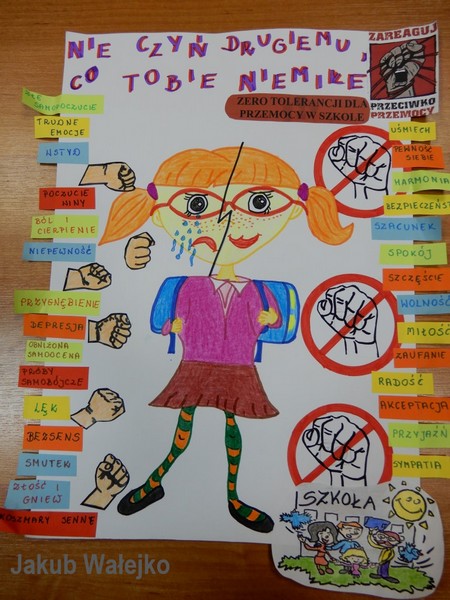 NIE CZYŃ DRUGIEMU,
CO TOBIE NIEMIŁE
ZAREAGUJ
PRZECIWKO
PRZEMOCY
ZERO TOLERANCJI DLA
PRZEMOCY W SZKOLE
SAMOPOCZUCIE
TRUDNE
EMOCJE
WSTYD
POCZUCIE
WINY
BÓL I
CIERPIENIE
NIEPEWNOŚĆ
PRZYGNĘBIENIE
DEPRESJA
OBNIŻONA
SAMOOCENA
PRÓBY
SAMOBÓJCZE
LĘK
BEZSENS
SMUTEK
ZŁOŚĆ I
GNIEW
KOSZMARY SENNE
UŚMIECH
PEWNOŚĆ
SIEBIE
HARMONIA
BEZPIECZEŃST
SZACUNEK
SPOKÓJ
SZCZĘŚCIE
WOLNOŚĆ
MIŁOŚĆ
ZAUFANIE
RADOŚĆ
AKCEPTACJA
PRZYJAŹŃ
SYMPATIA
SZKOŁA
Jakub Wałejko